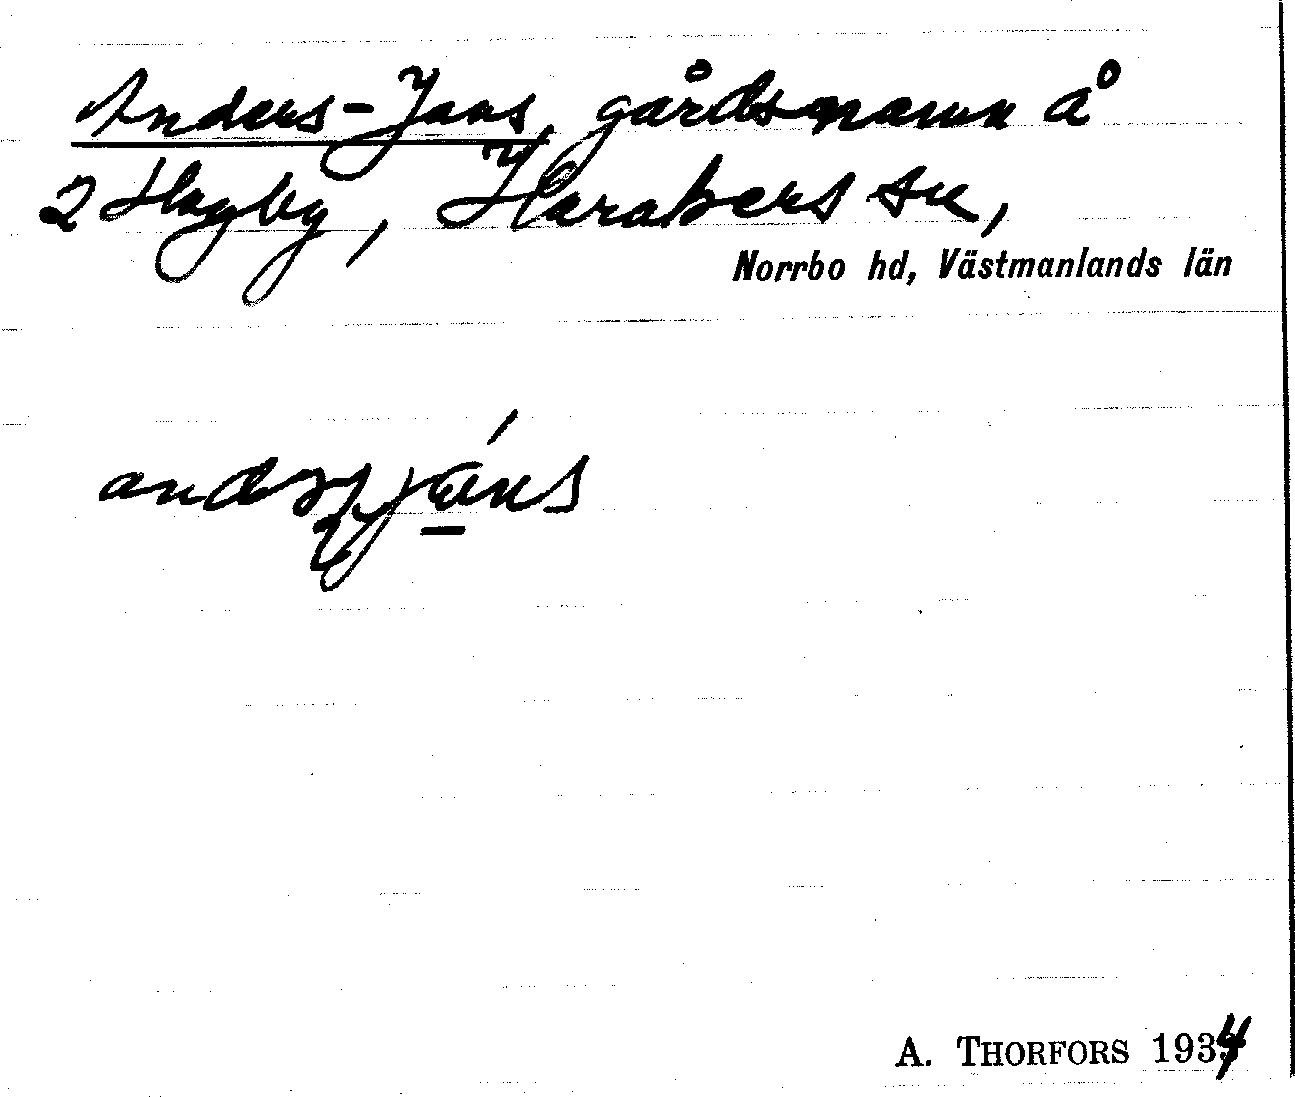 Anders-Jans, gårdsnamn å
2 Hagby, Harakers sn,
Norrbo hd, Västmanlands län
A. THORFORS 1934